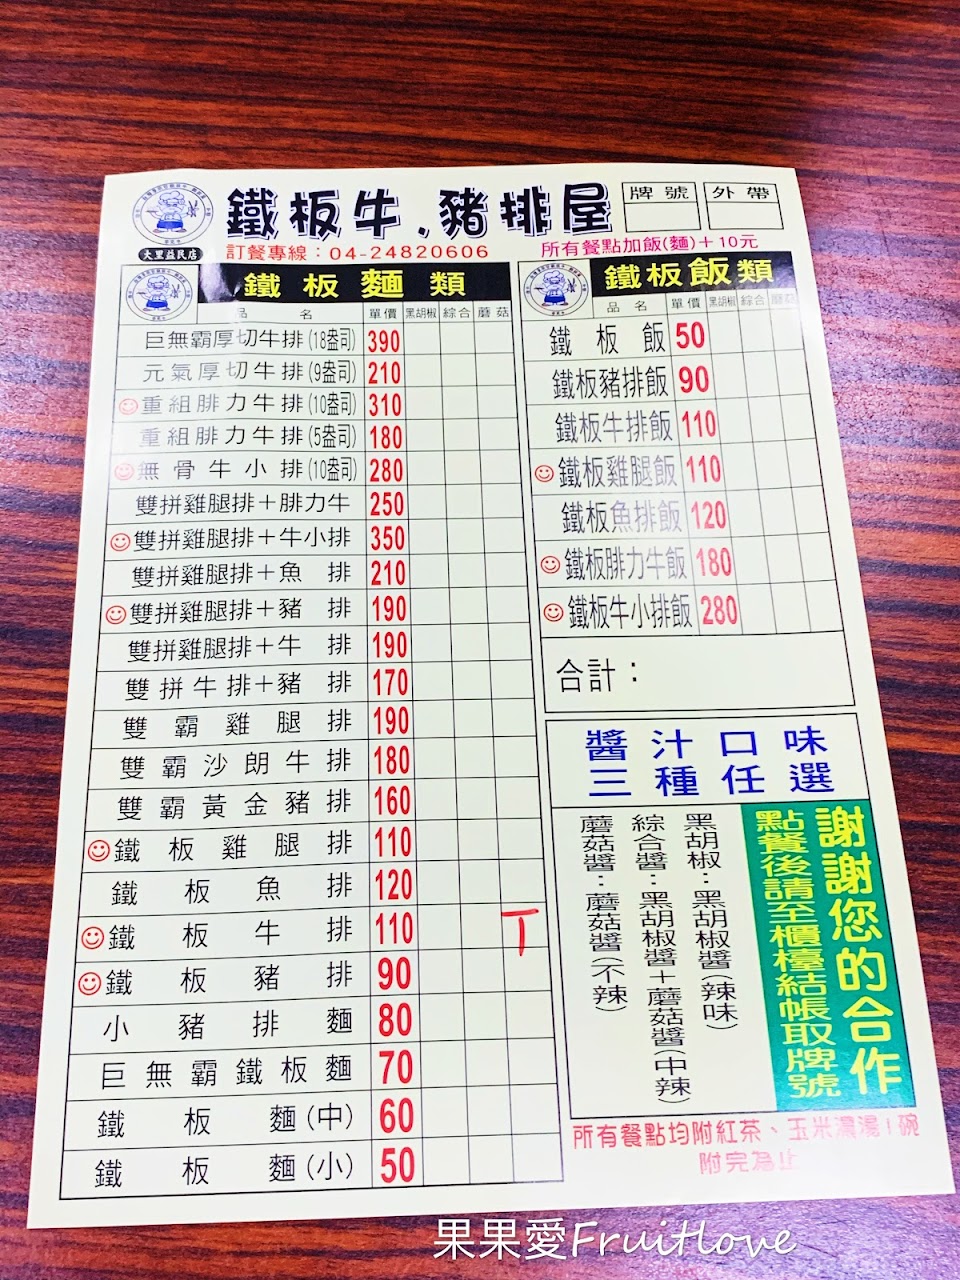 鐵板牛.豬排屋
牌號 外帶
大里益民店
訂餐專線：04-24820606
所有餐點加飯(麵)＋10元
鐵板麵類
品名 單價 黑胡椒 綜合 蘑菇
巨無霸厚切牛排(18盎司) 390
元氣厚切牛排(9盎司) 210
重組腓力牛排(10盎司) 310
重組腓力牛排(5盎司) 180
無骨牛小排(10盎司) 280
雙拼雞腿排＋腓力牛 250
雙拼雞腿排＋牛小排 350
雙拼雞腿排＋魚排 210
雙拼雞腿排＋豬排 190
雙拼雞腿排＋牛排 190
雙拼牛排＋豬排 170
雙霸雞腿排 190
雙霸沙朗牛排 180
雙霸黃金豬排 160
鐵板雞腿排 110
鐵板魚排 120
鐵板牛排 110 T
鐵板豬排 90
小豬排麵 80
巨無霸鐵板麵 70
鐵板麵(中) 60
鐵板麵(小) 50
鐵板飯類
品名 單價 黑胡椒 綜合 蘑菇
鐵板飯 50
鐵板豬排飯 90
鐵板牛排飯 110
鐵板雞腿飯 110
鐵板魚排飯 120
鐵板腓力牛飯 180
鐵板牛小排飯 280
合計：
醬汁口味
三種任選
謝謝您的合作
點餐後請至櫃檯結帳取牌號
黑胡椒：黑胡椒醬(辣味)
綜合醬：黑胡椒醬＋蘑菇醬(中辣)
蘑菇醬：蘑菇醬(不辣)
所有餐點均附紅茶、玉米濃湯1碗
附完為止
果果愛Fruitlove